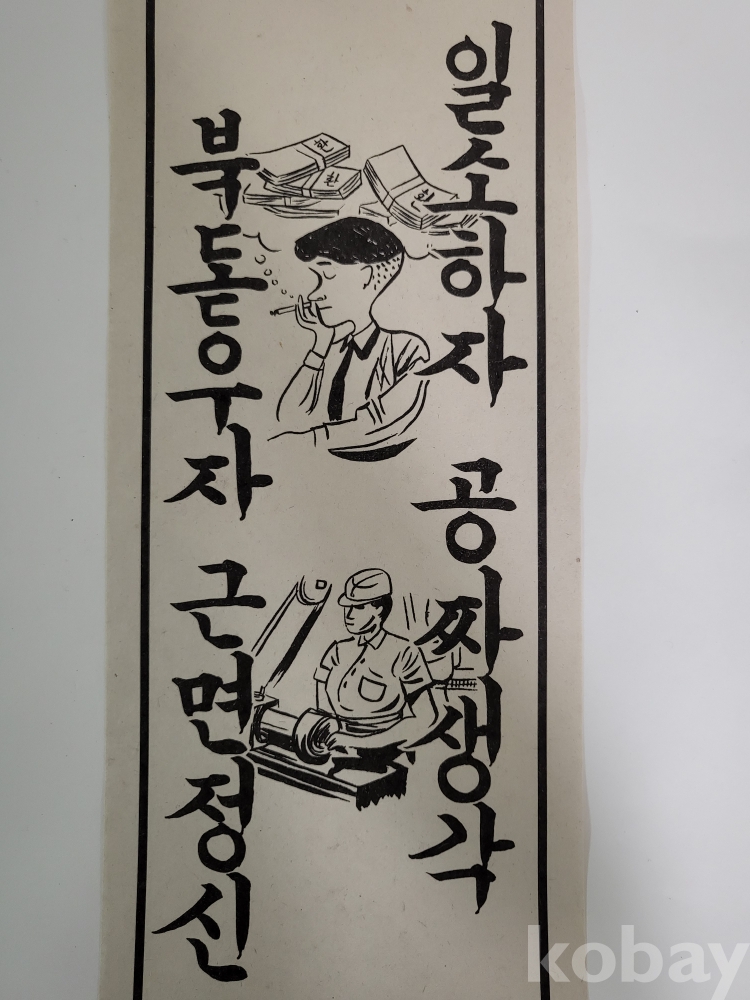 일소하자 공짜생각
북돋우자 근면정신
한
환
환
kobay